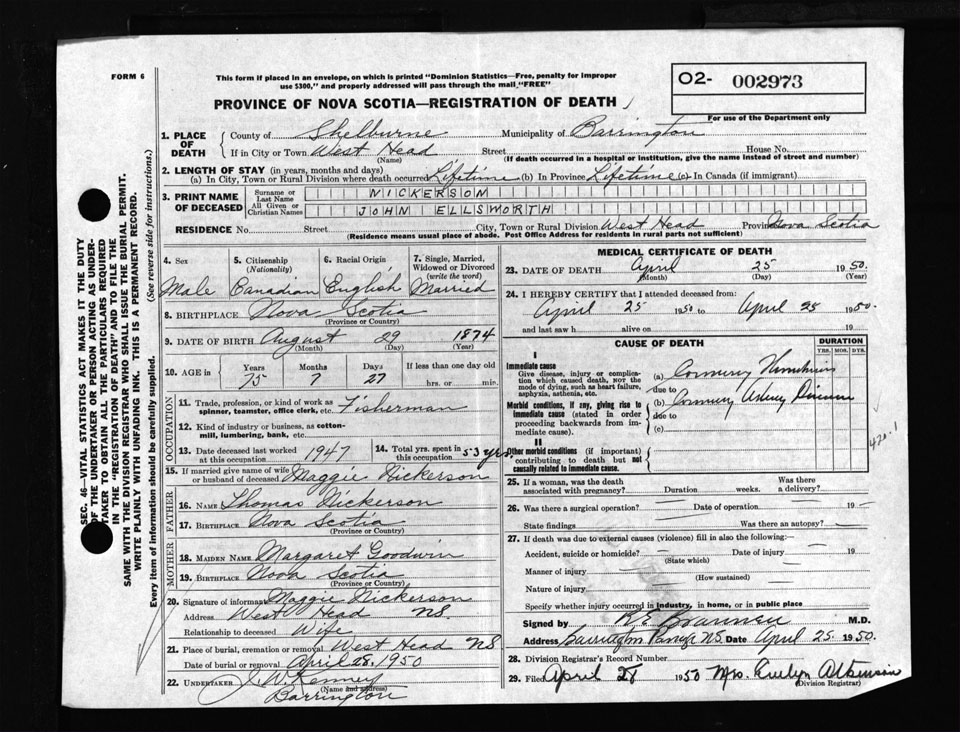 FORM 6
This form if placed in an envelope, on which is printed "Dominion Statistics—Free, penalty for improper
use $300," and properly addressed will pass through the mail "FREE"
PROVINCE OF NOVA SCOTIA—REGISTRATION OF DEATH
O2- 002973
For use of the Department only
SEC. 46—VITAL STATISTICS ACT MAKES IT THE DUTY
OF THE UNDERTAKER OR PERSON ACTING AS UNDER-
TAKER TO OBTAIN ALL THE PARTICULARS REQUIRED
IN THE "REGISTRATION OF DEATH" AND TO FILE THE
SAME WITH THE DIVISION REGISTRAR WHO SHALL ISSUE THE BURIAL PERMIT.
WRITE PLAINLY WITH UNFADING INK. THIS IS A PERMANENT RECORD.
Every item of information should be carefully supplied. (See reverse side for instructions.)
1. PLACE OF DEATH
County of Shelburne Municipality of Barrington
If in City or Town West Head Street House No.
(Name) (If death occurred in a hospital or institution, give the name instead of street and number)
2. LENGTH OF STAY (in years, months and days)
(a) In City, Town or Rural Division where death occurred Lifetime (b) In Province Lifetime (c) In Canada (if immigrant)
3. PRINT NAME OF DECEASED
Surname or Last Name NICKERSON
All Given or Christian Names JOHN ELLSWORTH
RESIDENCE No. Street City, Town or Rural Division West Head Province Nova Scotia
(Residence means usual place of abode. Post Office Address for residents in rural parts not sufficient)
4. Sex Male
5. Citizenship (Nationality) Canadian
6. Racial Origin English
7. Single, Married, Widowed or Divorced (write the word) Married
8. BIRTHPLACE Nova Scotia
(Province or Country)
9. DATE OF BIRTH August 29 1874
(Month) (Day) (Year)
10. AGE in Years 75 Months 7 Days 27 If less than one day old hrs. or min.
OCCUPATION
11. Trade, profession, or kind of work as
spinner, teamster, office clerk, etc. Fisherman
12. Kind of industry or business, as cotton-
mill, lumbering, bank, etc.
13. Date deceased last worked at this occupation 1947
14. Total yrs. spent in this occupation 53 yrs
15. If married give name of wife or husband of deceased Maggie Nickerson
FATHER
16. NAME Thomas Nickerson
17. BIRTHPLACE Nova Scotia
MOTHER
18. MAIDEN NAME Margaret Goodwin
19. BIRTHPLACE Nova Scotia
(Province or Country)
20. Signature of informant Maggie Nickerson
Address West Head NS
Relationship to deceased Wife
21. Place of burial, cremation or removal West Head NS
Date of burial or removal April 28, 1950
22. UNDERTAKER J. W. Kenney
(Name and address)
Barrington
MEDICAL CERTIFICATE OF DEATH
23. DATE OF DEATH April 25 1950.
(Month) (Day) (Year)
24. I HEREBY CERTIFY that I attended deceased from:
April 25 1950 to April 25 1950.
and last saw h alive on 19
CAUSE OF DEATH
DURATION
YRS. MOS. DYS.
I
Immediate cause
Give disease, injury or complica-
tion which caused death, not the
mode of dying, such as heart failure,
asphyxia, asthenia, etc.
(a) Coronary
due to
Morbid conditions, if any, giving rise to
immediate cause (stated in order
proceeding backwards from im-
mediate cause).
(b) Coronary Artery Disease
due to
(c)
420.1
II
Other morbid conditions (if important)
contributing to death but not
causally related to immediate cause.
25. If a woman, was the death
associated with pregnancy? Duration weeks. Was there a delivery?
26. Was there a surgical operation? — Date of operation 19 —
State findings Was there an autopsy? —
27. If death was due to external causes (violence) fill in also the following:—
Accident, suicide or homicide? — Date of injury — 19
(State which)
Manner of injury —
(How sustained)
Nature of injury
Specify whether injury occurred in industry, in home, or in public place
Signed by M.D.
Address Barrington Passage NS Date April 25 1950.
28. Division Registrar's Record Number
29. Filed April 28 1950 Mrs. Evelyn Atkinson
(Division Registrar)